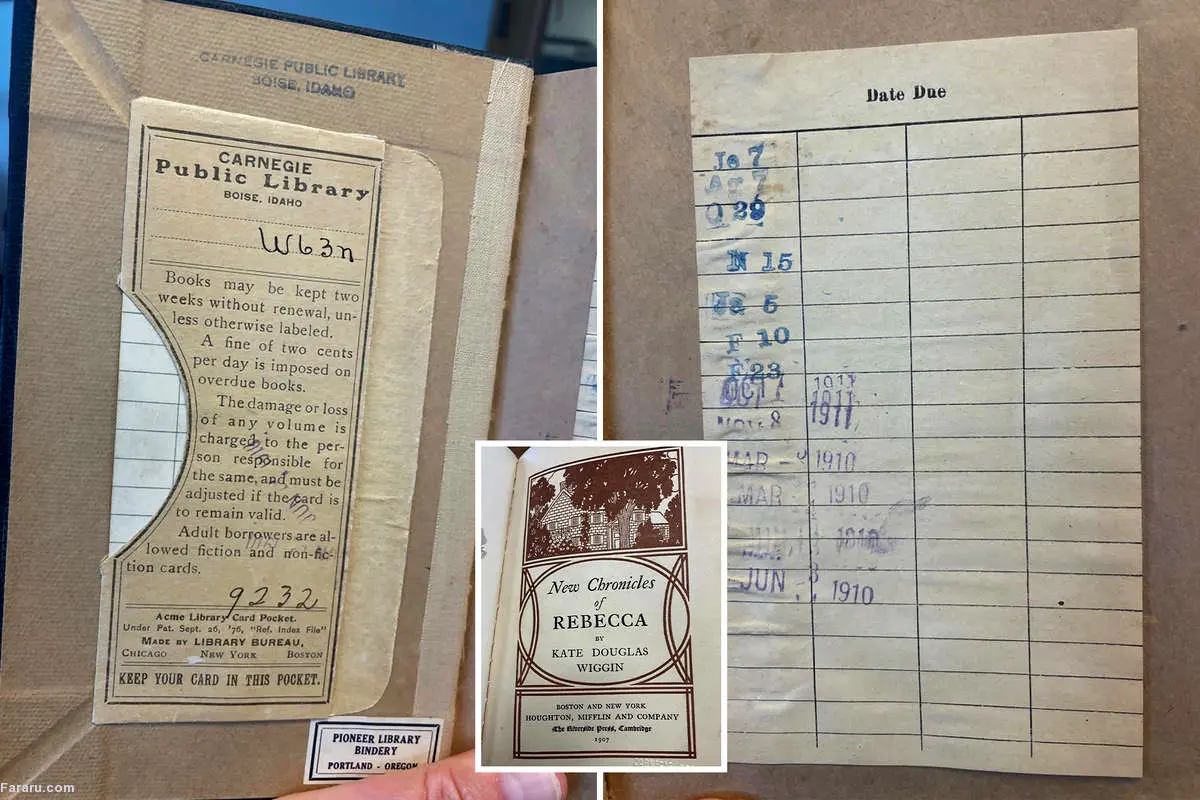 CARNEGIE PUBLIC LIBRARY
BOISE, IDAHO
CARNEGIE
Public Library
BOISE, IDAHO
W63n
Books may be kept two
weeks without renewal, un-
less otherwise labeled.
A fine of two cents
per day is imposed on
overdue books.
The damage or loss
of any volume is
charged to the per-
son responsible for
the same, and must be
adjusted if the card is
to remain valid.
Adult borrowers are al-
lowed fiction and non-fic-
tion cards.
9232
Acme Library Card Pocket.
Under Pat. Sept. 26, '76, "Ref. Index File"
MADE BY LIBRARY BUREAU,
CHICAGO NEW YORK BOSTON
KEEP YOUR CARD IN THIS POCKET.
PIONEER LIBRARY
BINDERY
PORTLAND - OREGON
New Chronicles
of
REBECCA
BY
KATE DOUGLAS
WIGGIN
BOSTON AND NEW YORK
HOUGHTON, MIFFLIN AND COMPANY
The Riverside Press, Cambridge
1907
Date Due
Ja 7
Ap 7
O 29
N 15
Ja 5
F 10
F 23
OCT 1911
NOV 8 1911
MAR 1910
MAR 1910
1910
JUN 1910
Fararu.com